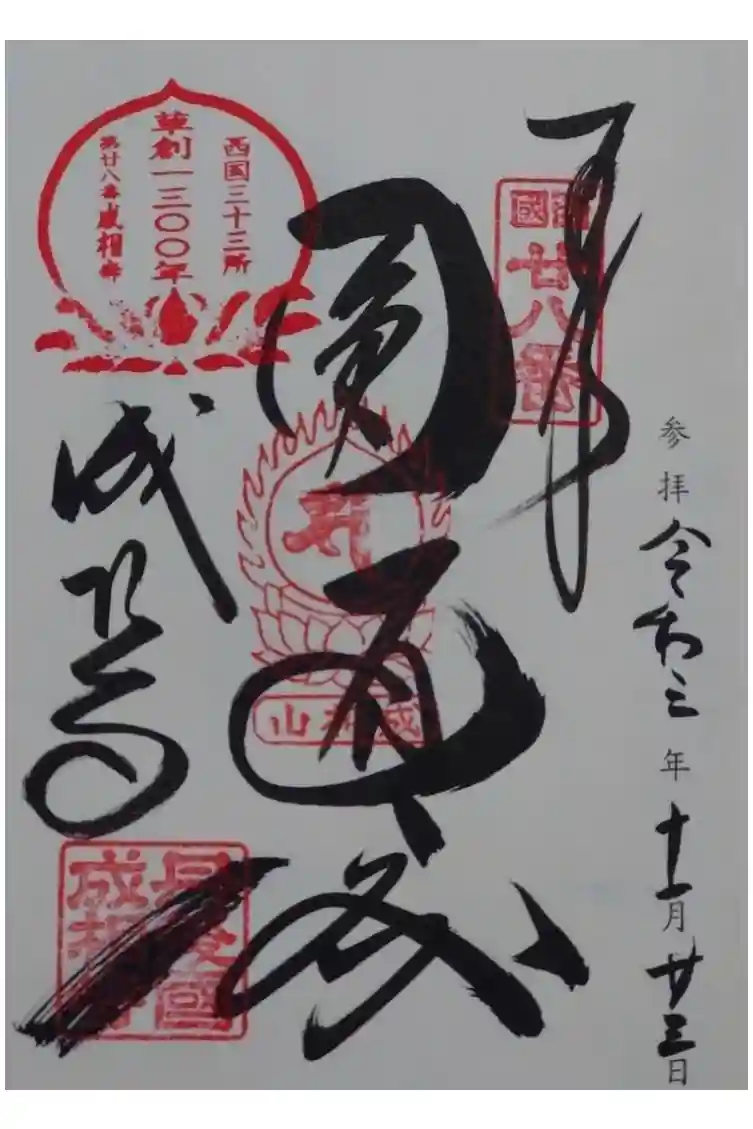 参拝 令和三年十一月廿三日
奉拝
西國
廿八番
圓通
成相山
西国三十三所
草創一三〇〇年
第廿八番 成相寺
成相寺
丹後國
成相寺